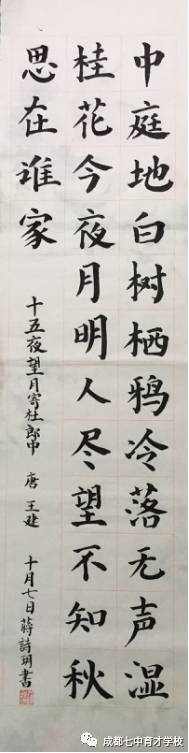 中庭地白树栖鸦冷落无声湿
桂花今夜月明人尽望不知秋
思在谁家
十五夜望月寄杜郎中 唐 王建 十月七日蒋詩玥書
成都七中育才学校